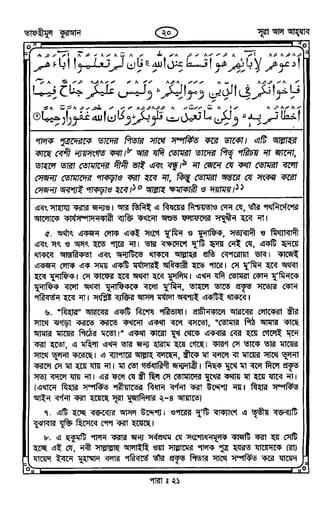 তাফহীমুল কুরআন
২০
সূরা আল আহযাব
اُدْعُوْهُمْ لِاٰبَآئِهِمْ هُوَ اَقْسَطُ عِنْدَ اللّٰهِ ۚ فَاِنْ لَّمْ تَعْلَمُوْٓا اٰبَآءَهُمْ
فَاِخْوَانُكُمْ فِى الدِّيْنِ وَمَوَالِيْكُمْ ؕ وَلَيْسَ عَلَيْكُمْ جُنَاحٌ فِيْمَآ
اَخْطَاْتُمْ بِهٖ ۙ وَلٰكِنْ مَّا تَعَمَّدَتْ قُلُوْبُكُمْ ؕ وَكَانَ اللّٰهُ غَفُوْرًا رَّحِيْمًا
পালক পুত্রদেরকে তাদের পিতার সাথে সম্পর্কিত করে ডাকো। এটি আল্লাহর
কাছে বেশী ন্যায়সংগত কথা।৮ আর যদি তোমরা তাদের পিতৃ পরিচয় না জানো,
তাহলে তারা তোমাদের দীনী ভাই এবং বন্ধু।৯ না জেনে যে কথা তোমরা বলো
সেজন্য তোমাদের পাকড়াও করা হবে না, কিন্তু তোমরা অন্তরে যে সংকল্প করো
সেজন্য অবশ্যই পাকড়াও হবে।১০ আল্লাহ ক্ষমাকারী ও দয়াময়।১১
এবং সাহায্য করার জন্যও। আর তিনিই এ বিষয়ের নিশ্চয়তাও দেন যে, তাঁর পথনির্দেশের
আলোকে কার্যসম্পাদনকারী ব্যক্তি কখনো অশুভ ফলাফলের সম্মুখীন হবে না।
৫. অর্থাৎ একজন লোক একই সংগে মু'মিন ও মুনাফিক, সত্যবাদী ও মিথ্যাবাদী
এবং সৎ ও অসৎ হতে পারে না। তার বক্ষদেশে দু'টি হৃদয় নেই যে, একটি হৃদয়ে
থাকবে আন্তরিকতা এবং অন্যটিতে থাকবে আল্লাহর প্রতি বেপরোয়া ভাব। কাজেই
একজন লোক এক সময় একটি মর্যাদারই অধিকারী হতে পারে। সে মু'মিন হবে অথবা
হবে মুনাফিক। সে কাফের হবে অথবা হবে মুসলিম। এখন যদি তোমরা কোন মু'মিনকে
মুনাফিক বলো অথবা মুনাফিককে বলো মু'মিন, তাহলে তাতে প্রকৃত সত্যের কোন
পরিবর্তন হবে না। সংশ্লিষ্ট ব্যক্তির আসল মর্যাদা অবশ্যই একটিই থাকবে।
৬. "যিহার" আরবের একটি বিশেষ পরিভাষা। প্রাচীনকালে আরবের লোকেরা স্ত্রীর
সাথে ঝগড়া করতে করতে কখনো একথা বলে বসতো, "তোমার পিঠ আমার কাছে
আমার মায়ের পিঠের মতো।" একথা কারো মুখ থেকে একবার বের হয়ে গেলেই মনে
করা হতো, এ মহিলা এখন তার জন্য হারাম হয়ে গেছে। কারণ সে তাকে তার মায়ের
সাথে তুলনা করেছে। এ ব্যাপারে আল্লাহ বলছেন, স্ত্রীকে মা বললে বা মায়ের সাথে তুলনা
করলে সে মা হয়ে যায় না। মা তো গর্ভধারিণী জন্মদাত্রী। নিছক মুখে মা বলে দিলে প্রকৃত
সত্য বদলে যায় না। এর ফলে যে স্ত্রী ছিল সে তোমাদের মুখের কথায় মা হয়ে যাবে না।
(এখানে যিহার সম্পর্কিত শরীয়াতের বিধান বর্ণনা করা উদ্দেশ্য নয়। যিহার সম্পর্কিত
আইন বর্ণনা করা হয়েছে সূরা মুজাদিলার ২-৪ আয়াতে)
৭. এটি হচ্ছে বক্তব্যের আসল উদ্দেশ্য। ওপরের দু'টি বাক্যাংশ এ তৃতীয় বক্তব্যটি
বুঝাবার যুক্তি হিসেবে পেশ করা হয়েছে।
৮. এ হুকুমটি পালন করার জন্য সর্বপ্রথম যে সংশোধনমূলক কাজটি করা হয় সেটি
হচ্ছে এই যে, নবী সাল্লাল্লাহু আলাইহি ওয়া সাল্লামের পালক পুত্র হযরত যায়েদকে (রা)
যায়েদ ইবনে মুহাম্মাদ বলার পরিবর্তে তাঁর প্রকৃত পিতার সাথে সম্পর্কিত করে যায়েদ
পারা : ২১